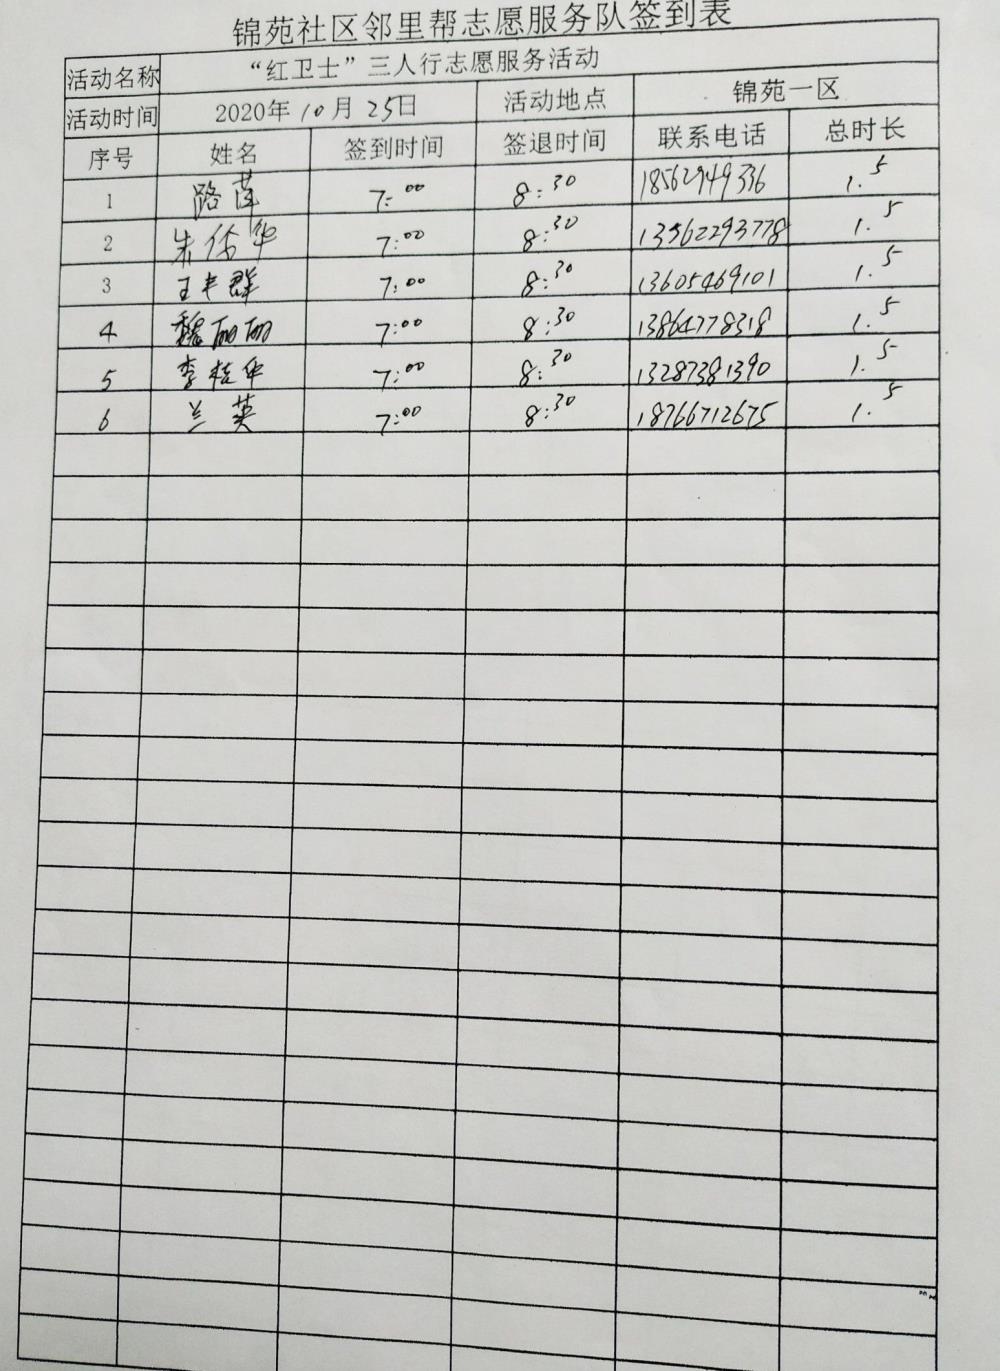 锦苑社区邻里帮志愿服务队签到表
活动名称 “红卫士”三人行志愿服务活动
活动时间 2020年10月25日 活动地点 锦苑一区
序号 姓名 签到时间 签退时间 联系电话 总时长
1 路萍 7:00 8:30 18562949336 1.5
2 朱传华 7:00 8:30 13562293778 1.5
3 王丰群 7:00 8:30 13605469101 1.5
4 魏丽丽 7:00 8:30 13864778318 1.5
5 李桂华 7:00 8:30 13287381390 1.5
6 兰英 7:00 8:30 18766712675 1.5